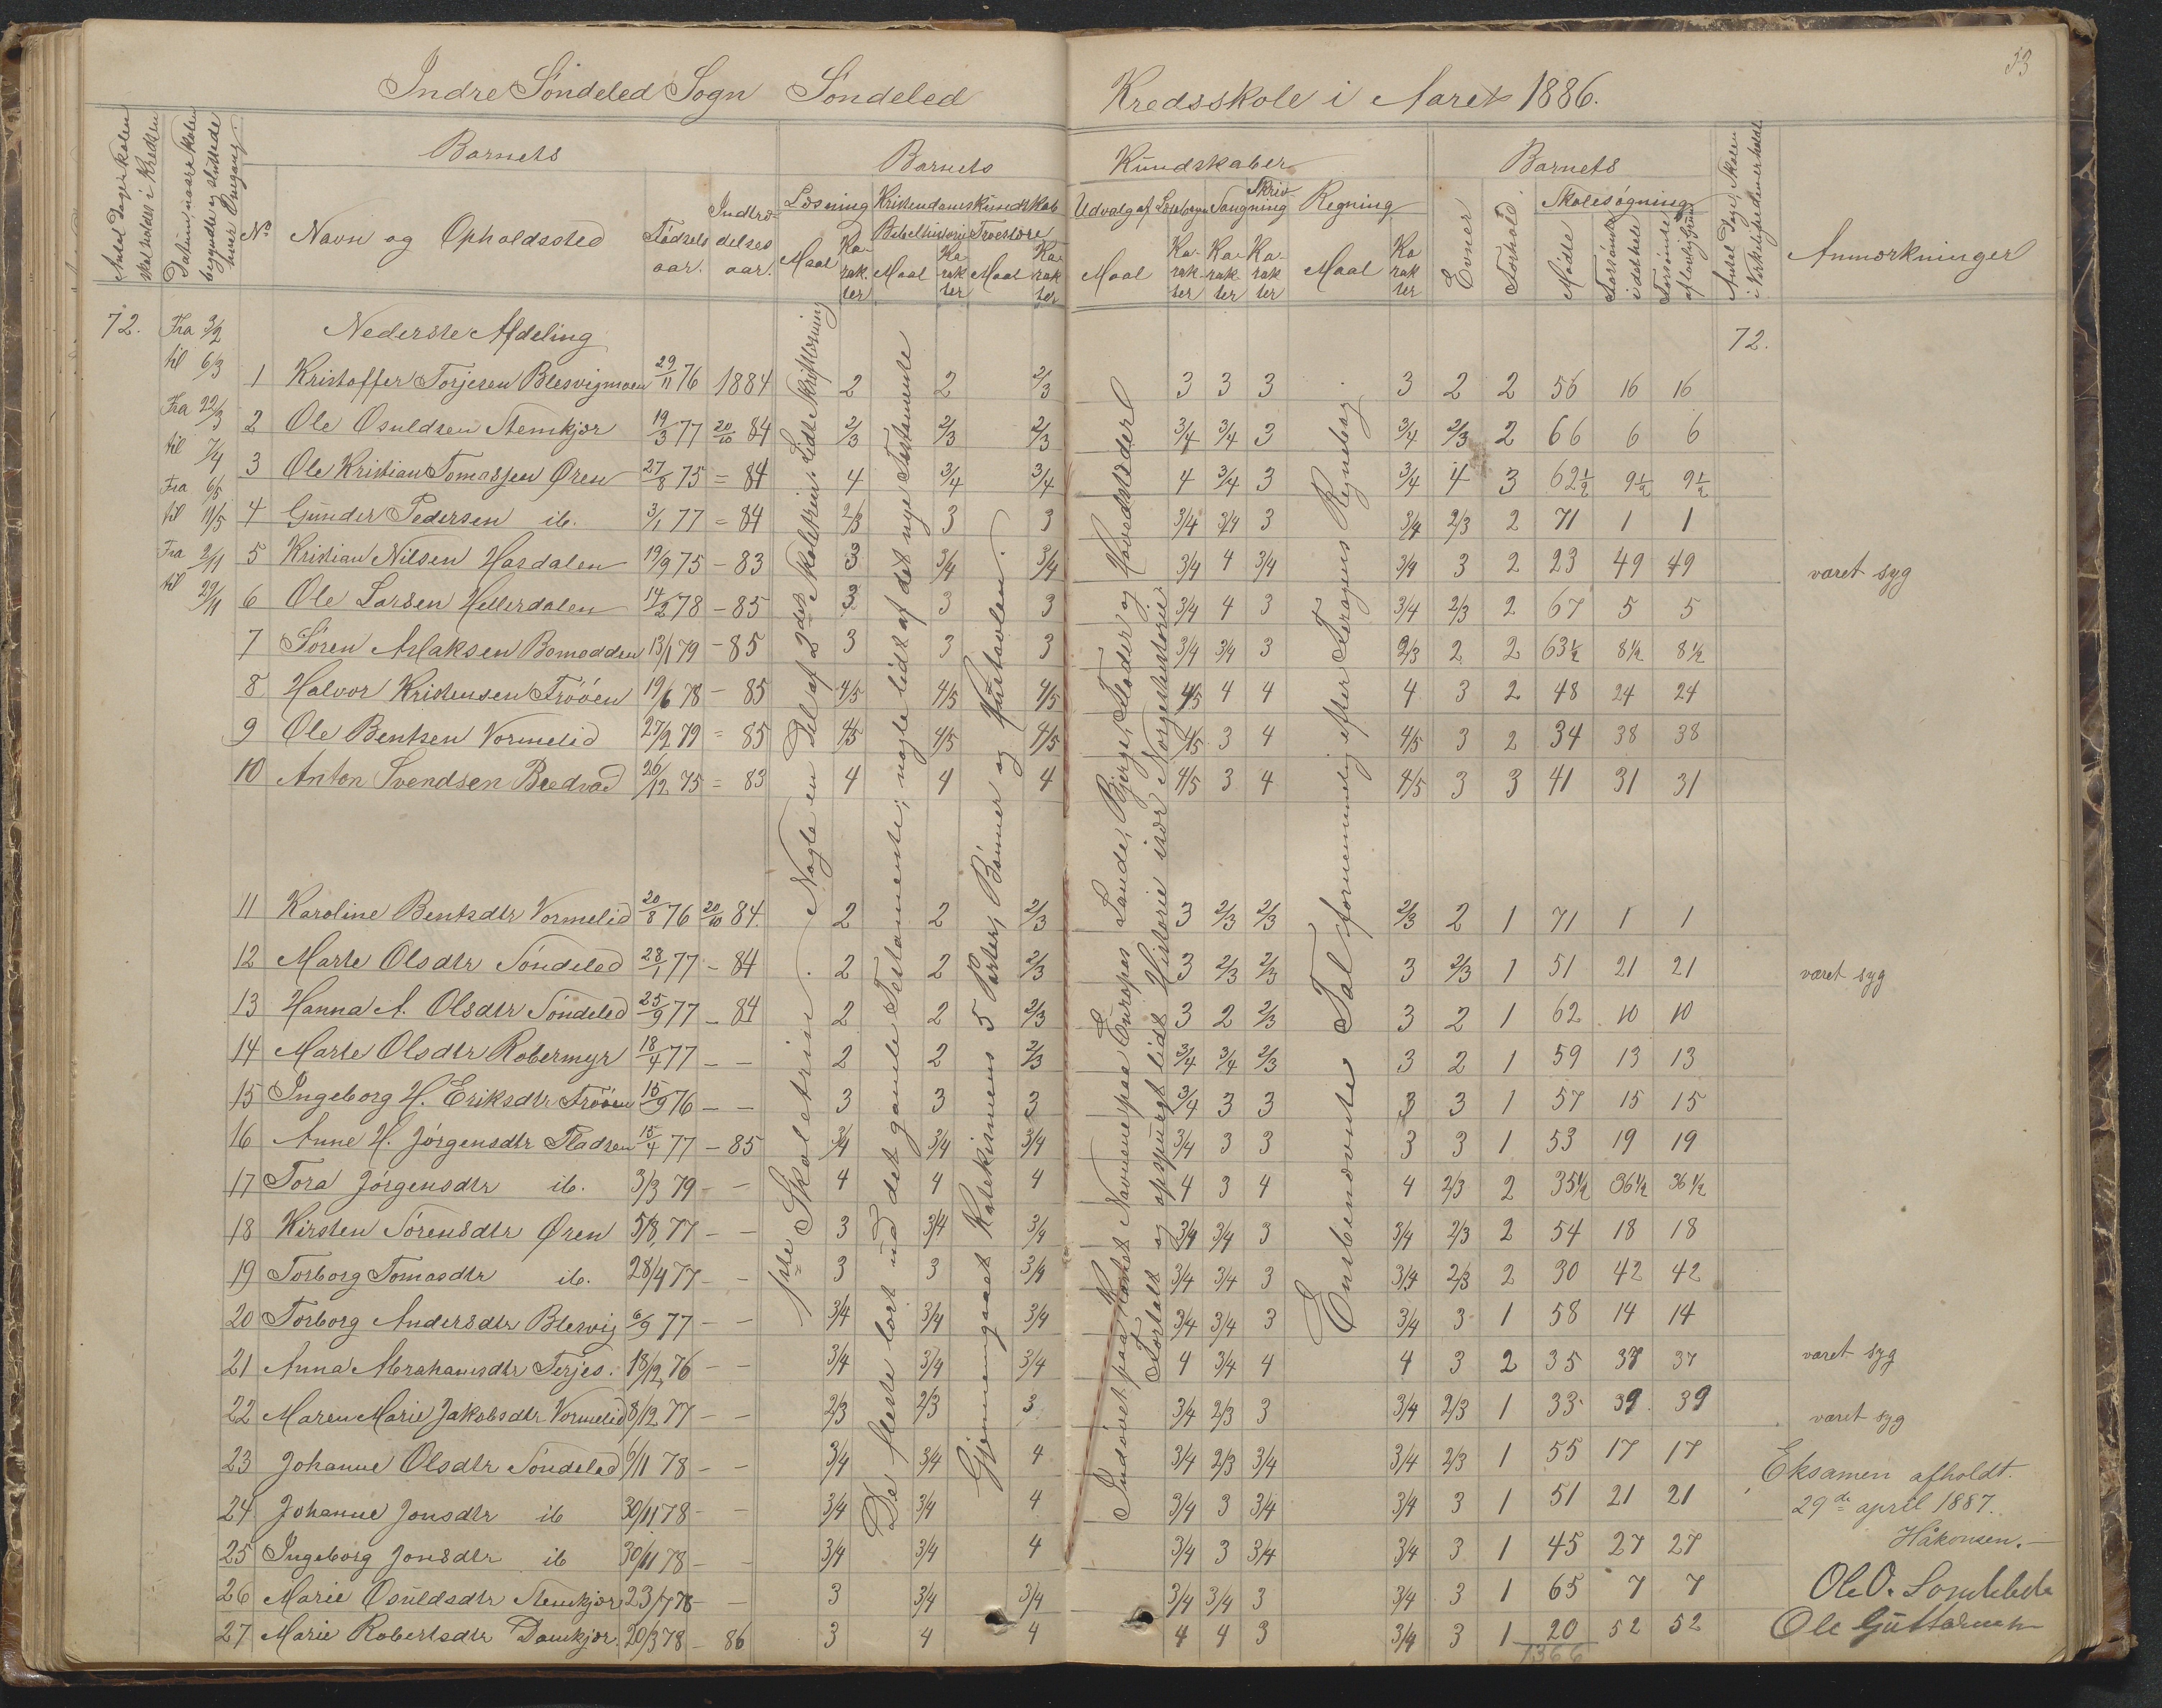 53
Indre Söndeled Sogn Söndeled Kredsskole i Aaret 1886.
Antal Dage Skolen skal holdes i Kredsen
Datum, naar Skolen begyndte og sluttede hver Omgang.
Barnets
No
Navn og Opholdssted
Fødselsaar.
Indtrædelsesaar.
Barnets Kundskaber
Læsning
Maal
Karakter
Kristendomskundskab
Bibelhistorie
Maal
Karakter
Troeslære
Maal
Karakter
Udvalg af Læsebogen
Maal
Karakter
Sang
Karakter
Skrivning
Karakter
Regning
Maal
Karakter
Barnets
Evner
Forhold.
Skolesøgning
Mødte
Forsømte i det hele
Forsømte af lovlig Grund
Antal Dage, Skolen i Virkeligheden er holdt
Anmærkninger
72. Fra 3/2 Nederste Afdeling 72.
til 6/3
Fra 22/3
til 7/4
Fra 6/5
til 11/5
Fra 2/11
til 29/11
1 Kristoffer Torjesen Blesvigmoen 29/11 76 1884 2 2 2/3 3 3 3 3 2 2 56 16 16
2 Ole Osuldsen Stemkjær 19/3 77 20/10 84 2/3 2/3 2/3 3/4 3/4 3 3/4 2/3 2 66 6 6
3 Ole Kristian Tomassen Øren 27/8 75 = 84 4 3/4 3/4 4 3/4 3 3/4 4 3 62½ 9½ 9½
4 Gunder Pedersen ib. 3/1 77 = 84 2/3 3 3 3/4 3/4 3 3/4 2/3 2 71 1 1
5 Kristian Nilsen Hasdalen 19/9 75 - 83 3 3/4 3/4 3/4 4 3/4 3/4 3 2 23 49 49 været syg
6 Ole Larsen Hellerdalen 14/2 78 - 85 3 3 3 3/4 4 3 3/4 2/3 2 67 5 5
7 Sören Aslaksen Bomodden 13/1 79 - 85 3 3 3 3/4 3/4 3 2/3 2 2 63½ 8½ 8½
8 Halvor Kristensen Frøöen 19/6 78 - 85 4/5 4/5 4/5 4/5 4 4 4 3 2 48 24 24
9 Ole Bentsen Vormelid 27/2 79 = 85 4/5 4/5 4/5 4/5 3 4 4/5 3 2 34 38 38
10 Anton Svendsen Bredvad 26/12 75 = 83 4 4 4 4/5 3 4 4/5 3 3 41 31 31
11 Karoline Bentsdtr Vormelid 20/8 76 20/10 84. 2 2 2/3 3 2/3 2/3 2/3 2 1 71 1 1
12 Marte Olsdtr Söndeled 28/1 77 - 84 2 2 2/3 3 2/3 2/3 3 2/3 1 51 21 21 været syg
13 Hanna A. Olsdtr Söndeled 25/9 77 - 84 2 2 2/3 3 2 2/3 3 2 1 62 10 10
14 Marte Olsdtr Robermyr 18/4 77 - - 2 2 2/3 3/4 3/4 2/3 3 2 1 59 13 13
15 Ingeborg H. Eriksdtr Frøöen 15/9 76 - - 3 3 3 3/4 3 3 3 3 1 57 15 15
16 Anne H. Jörgensdtr Pladsen 15/4 77 - 85 3/4 3/4 3/4 3/4 3 3 3 3 1 53 19 19
17 Tora Jörgensdtr ib. 3/3 79 - - 4 4 4 4 3 4 4 2/3 2 35½ 36½ 36½
18 Kirsten Sörensdtr Øren 5/8 77 - - 3 3/4 3/4 3/4 3/4 3 3/4 2/3 2 54 18 18
19 Torborg Tomasdtr ib. 28/4 77 - - 3 3 3/4 3/4 3/4 3 3/4 2/3 2 30 42 42
20 Torborg Andersdtr Blesvig 6/9 77 - - 3/4 3/4 3/4 3/4 3/4 3 3/4 3 1 58 14 14
21 Anna Abrahamsdtr Terjes. 18/12 76 - - 3/4 3/4 3/4 4 3/4 4 4 3 2 35 37 37 været syg
22 Maren Marie Jakobsdtr Vormelid 8/12 77 - - 2/3 2/3 3 3/4 2/3 3 3/4 2/3 1 33 39 39 været syg
23 Johanne Olsdtr Söndeled 6/11 78 - - 3/4 3/4 4 3/4 2/3 3/4 3/4 2/3 1 55 17 17
24 Johanne Jonsdtr ib 30/11 78 - - 3/4 3/4 4 3/4 3 3/4 3/4 3 1 51 21 21
25 Ingeborg Jonsdtr ib 30/11 78 - - 3/4 3/4 4 3/4 3 3/4 3/4 3 1 45 27 27
26 Marie Osuldsdtr Stemkjær 23/7 78 - - 3 3/4 3/4 3/4 3/4 3 3/4 3 1 65 7 7
27 Marie Robertsdtr Damkjær. 20/3 78 - 86 3 4 4 4 4 3 3/4 3 1 20 52 52
1366
1ste Skoletrin. Nogle en Del af 2det Skoletrin. Lidt Skriftlæsning
De fleste læst ud det gamle Testamente; nogle lidt af det nye Testamente
Gjennemgaaet Katekismens 5 Parter, Bönner og Hustavlen.
Indøvet paa Kartet Navnene paa Europas Lande, Bjerge, Floder og Hovedstæder
Fortalt og opspurgt lidt Historie især Norgeshistorie
Enebenævnte Tal fornemmelig efter Regnebog
Eksamen afholdt.
29de april 1887.
Håkonsen.
Ole O. Söndeled
Ole Guttormsen